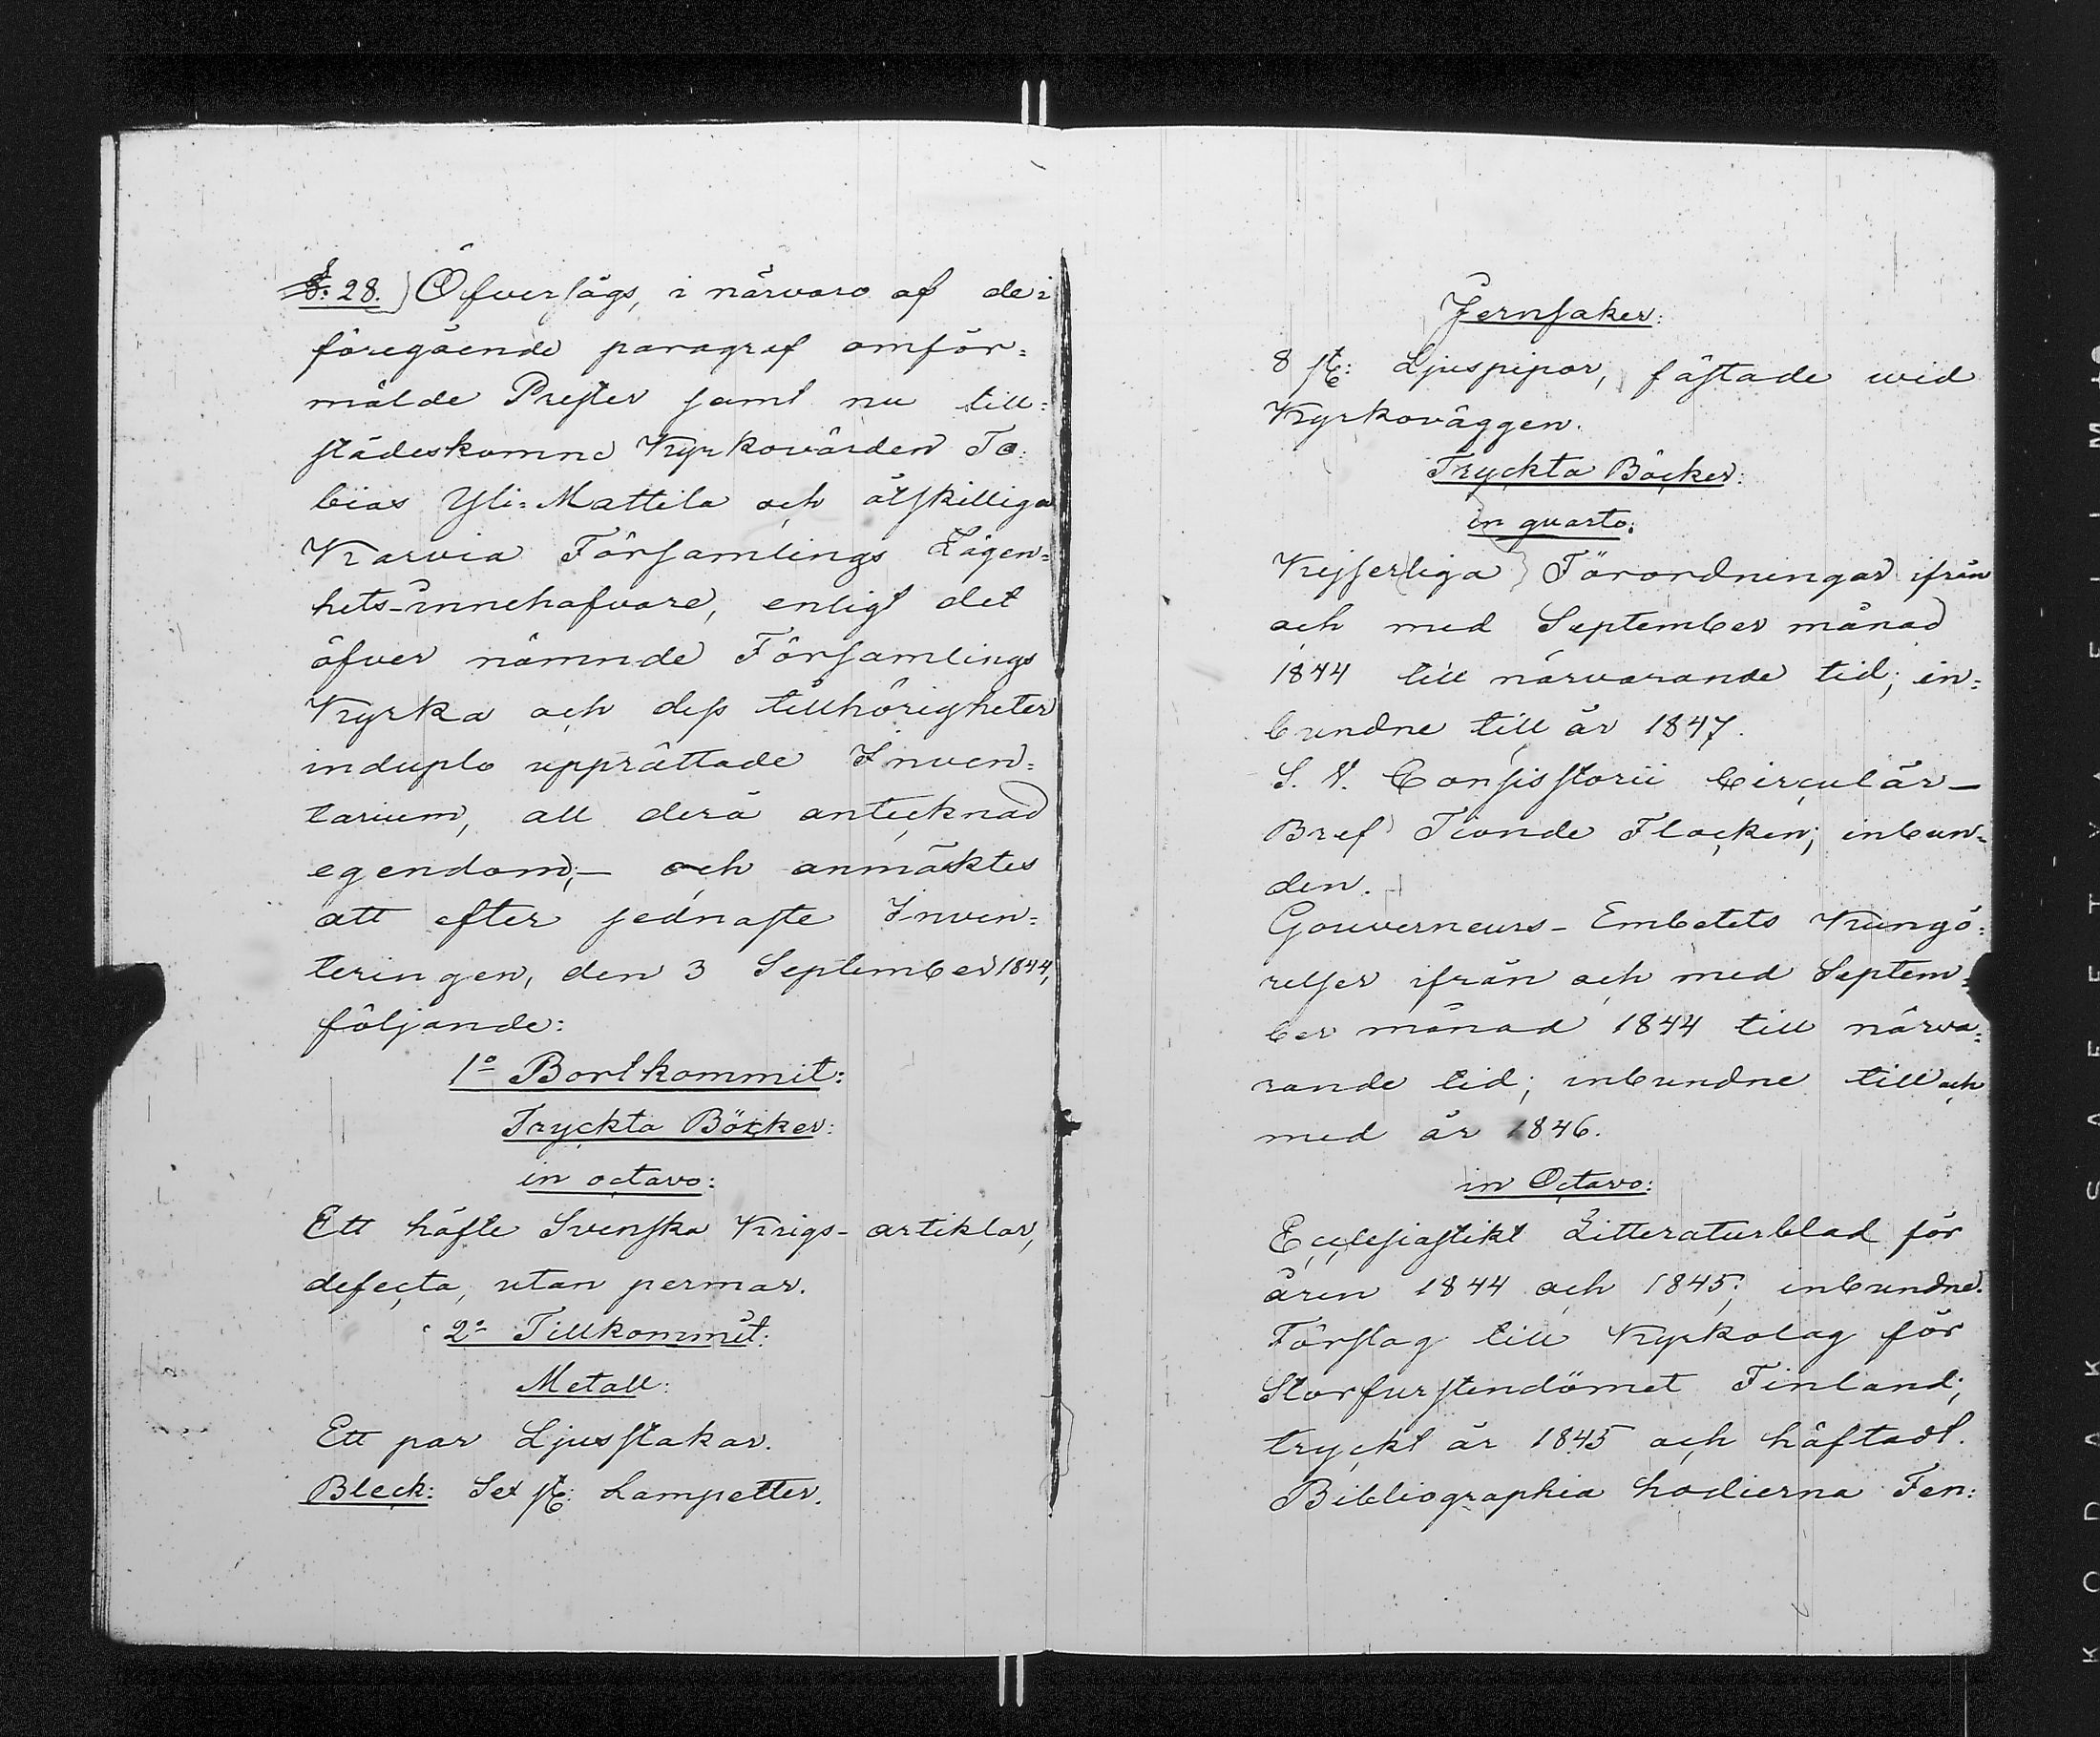 §. 28.) Öfversågs, i närvaro af de i
föregående paragraf omför=
mälde Prester samt nu till=
städeskomne Kyrkovärden To=
bias Yli=Mattila och åtskilliga
Karvia Församlings Lägen=
hets-innehafvare, enligt det
öfver nämnde Församlings
Kyrka och dess tillhörigheter
induplo upprättade Inven=
tarium, all derå antecknad
egendom; — och anmärktes
att efter sednaste Inven=
teringen, den 3 September 1844,
följande:
1º Bortkommit:
Tryckta Böcker:
in octavo:
Ett häfte Svenska Krigs-artiklar,
defecta, utan permar.
2º Tillkommit:
Metall:
Ett par Ljusstakar.
Bleck: Sex st: Lampetter.
Jernsaker:
8 st: Ljuspipor, fästade wid
Kyrkoväggen.
Tryckta Böcker:
in quarto:
Kejserliga Förordningar ifrån
och med September månad
1844 till närvarande tid; in=
bundne till år 1847.
S. V. Consistorii Circulär—
Bref Tionde Flocken; inbun=
den.
Gouverneurs-Embetets Kungö=
relser ifrån och med Septem=
ber månad 1844 till närva=
rande tid; inbundne till och
med år 1846.
in Octavo:
Ecclesiastikt Litteraturblad för
åren 1844 och 1845; inbundne.
Förslag till Kyrkolag för
Storfurstendömet Finland;
tryckt år 1845 och häftadt.
Bibliographia hodierna Fen=
KODAK SAFETY FILM